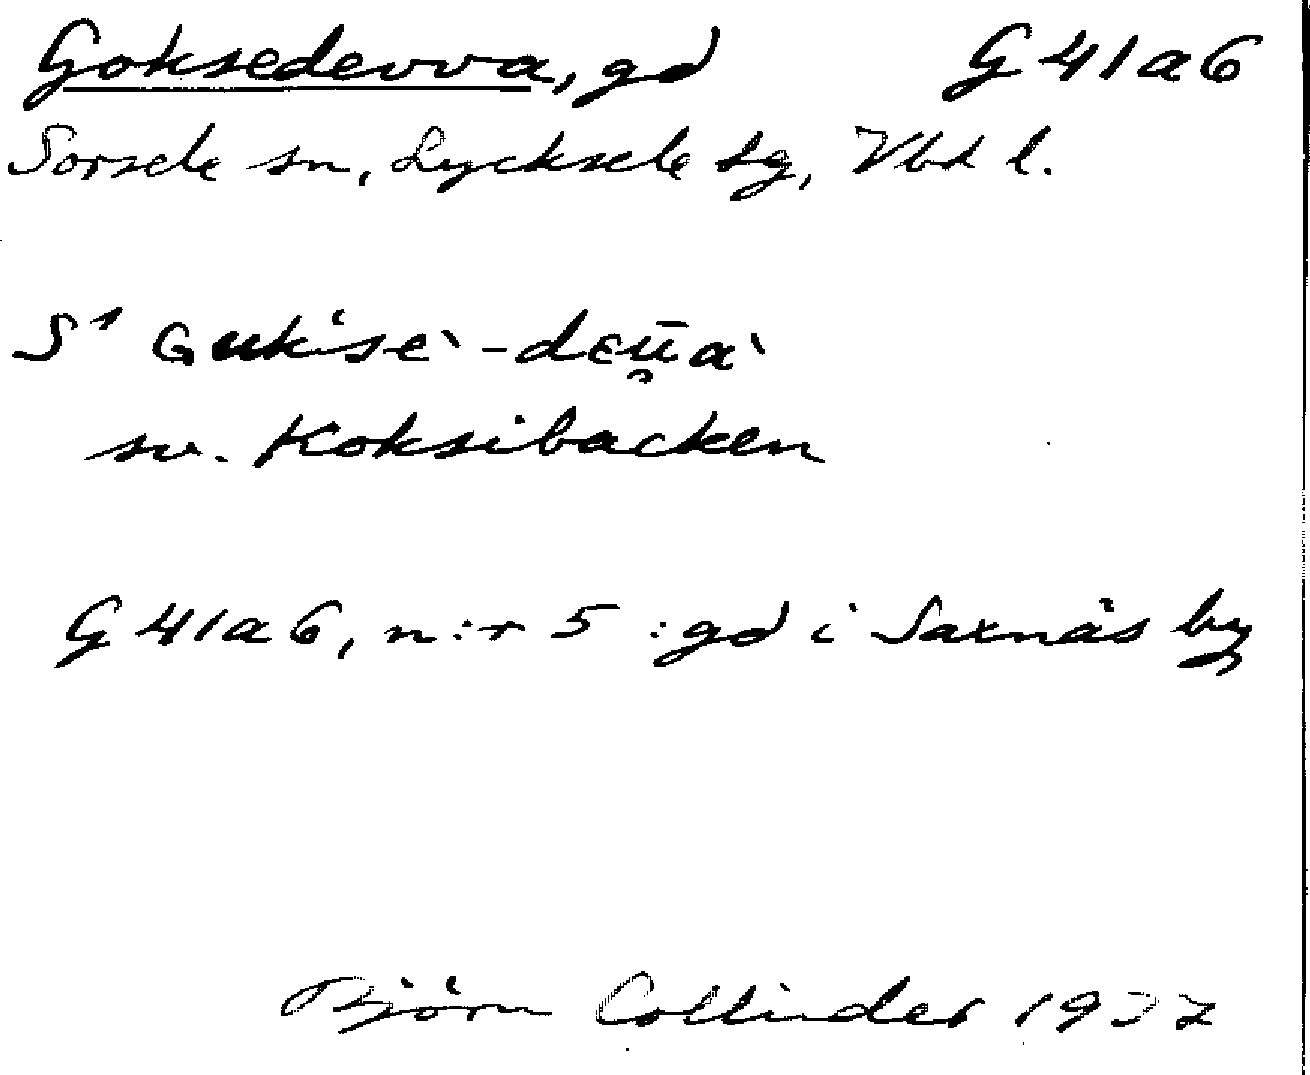 Goksedevva, gd G 41 a 6
Sorsele sn, Lycksele lg, Vbt l.
sv. Koksibacken
G 41 a 6, n:r 5 : gd i Saxnäs by
Björn Collinder 1937